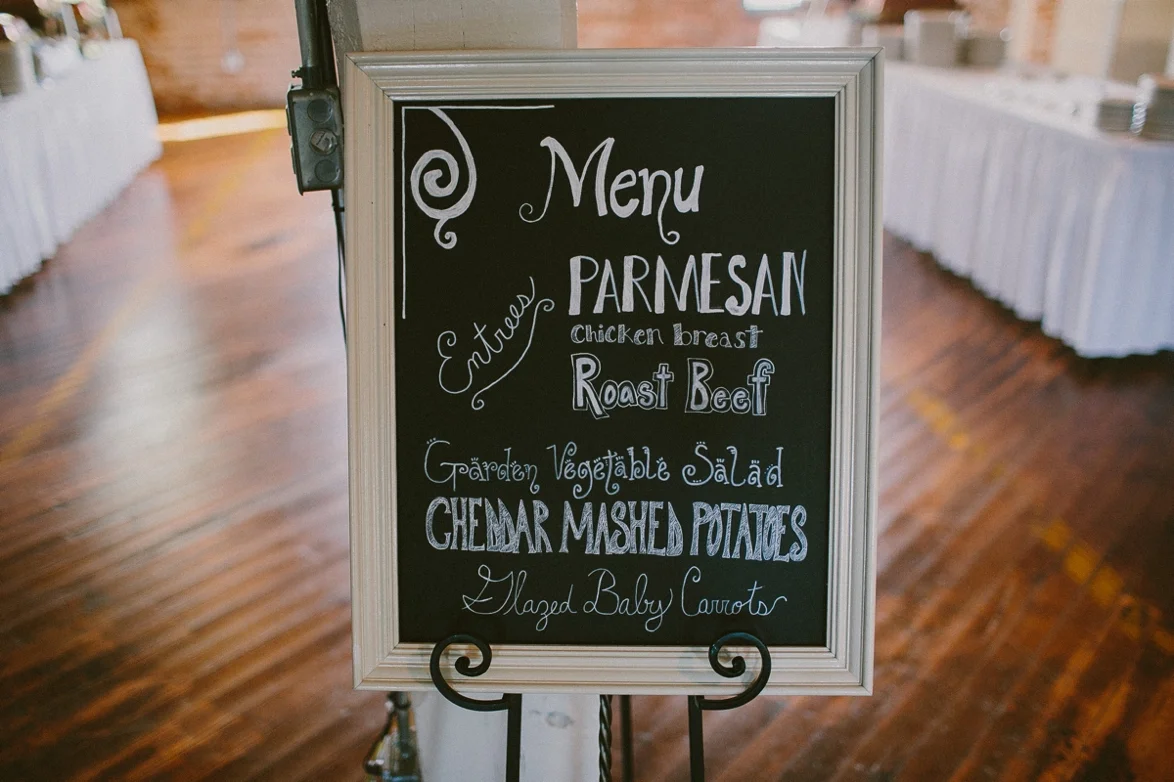 Menu
Entrees
PARMESAN
chicken breast
Roast Beef
Garden Vegetable Salad
CHEDDAR MASHED POTATOES
Glazed Baby Carrots